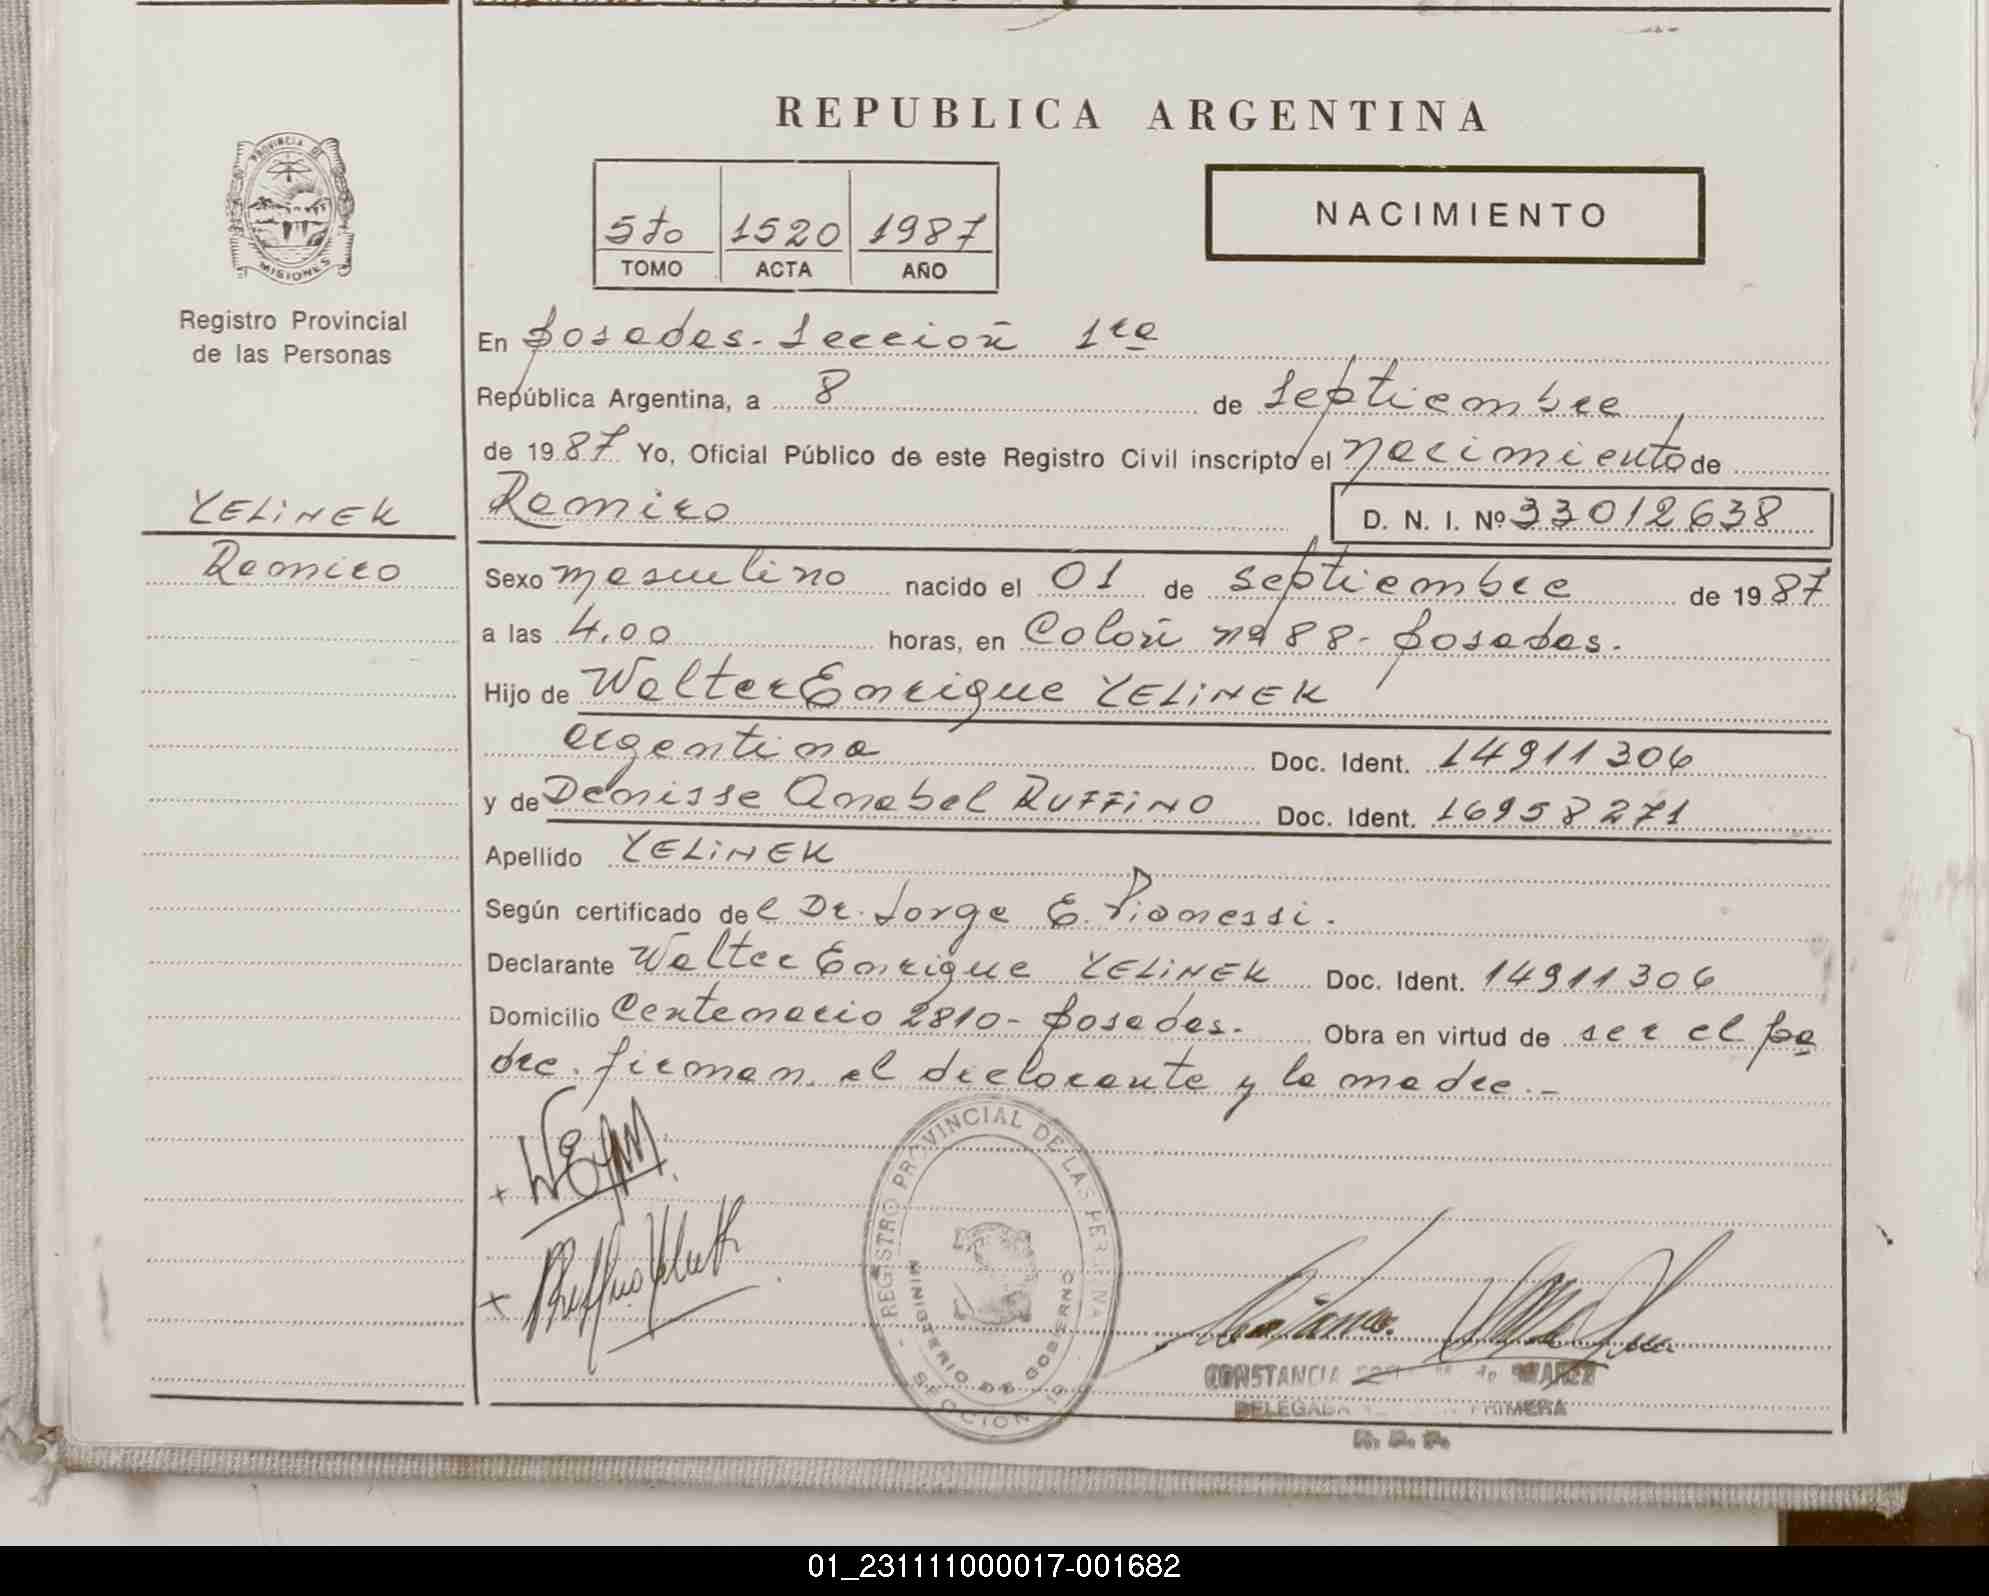 REPUBLICA ARGENTINA
PROVINCIA DE
MISIONES
5to 1520 1987
TOMO ACTA AÑO
NACIMIENTO
Registro Provincial
de las Personas
En Posadas - Sección 1ra
República Argentina, a 8 de septiembre
de 1987 Yo, Oficial Público de este Registro Civil inscripto el nacimiento de
YELINEK
Ramiro
Ramiro D. N. I. Nº 33012638
Sexo masculino nacido el 01 de septiembre de 1987
a las 4,00 horas, en Colón nº 88 - Posadas.
Hijo de Walter Enrique YELINEK
argentina Doc. Ident. 14911306
y de Denisse Anabel RUFFINO Doc. Ident. 16958271
Apellido YELINEK
Según certificado del Dr. Jorge E. Pianessi.
Declarante Walter Enrique YELINEK Doc. Ident. 14911306
Domicilio Centenario 2810 - Posadas. Obra en virtud de ser el pa
dre. firman, el declarante y la madre. -
REGISTRO PROVINCIAL DE LAS PER
MINISTERIO DE GOBIERNO
SECCION 1a
CONSTANCIA
DELEGADA PRIMERA
R. P. P.
01_231111000017-001682